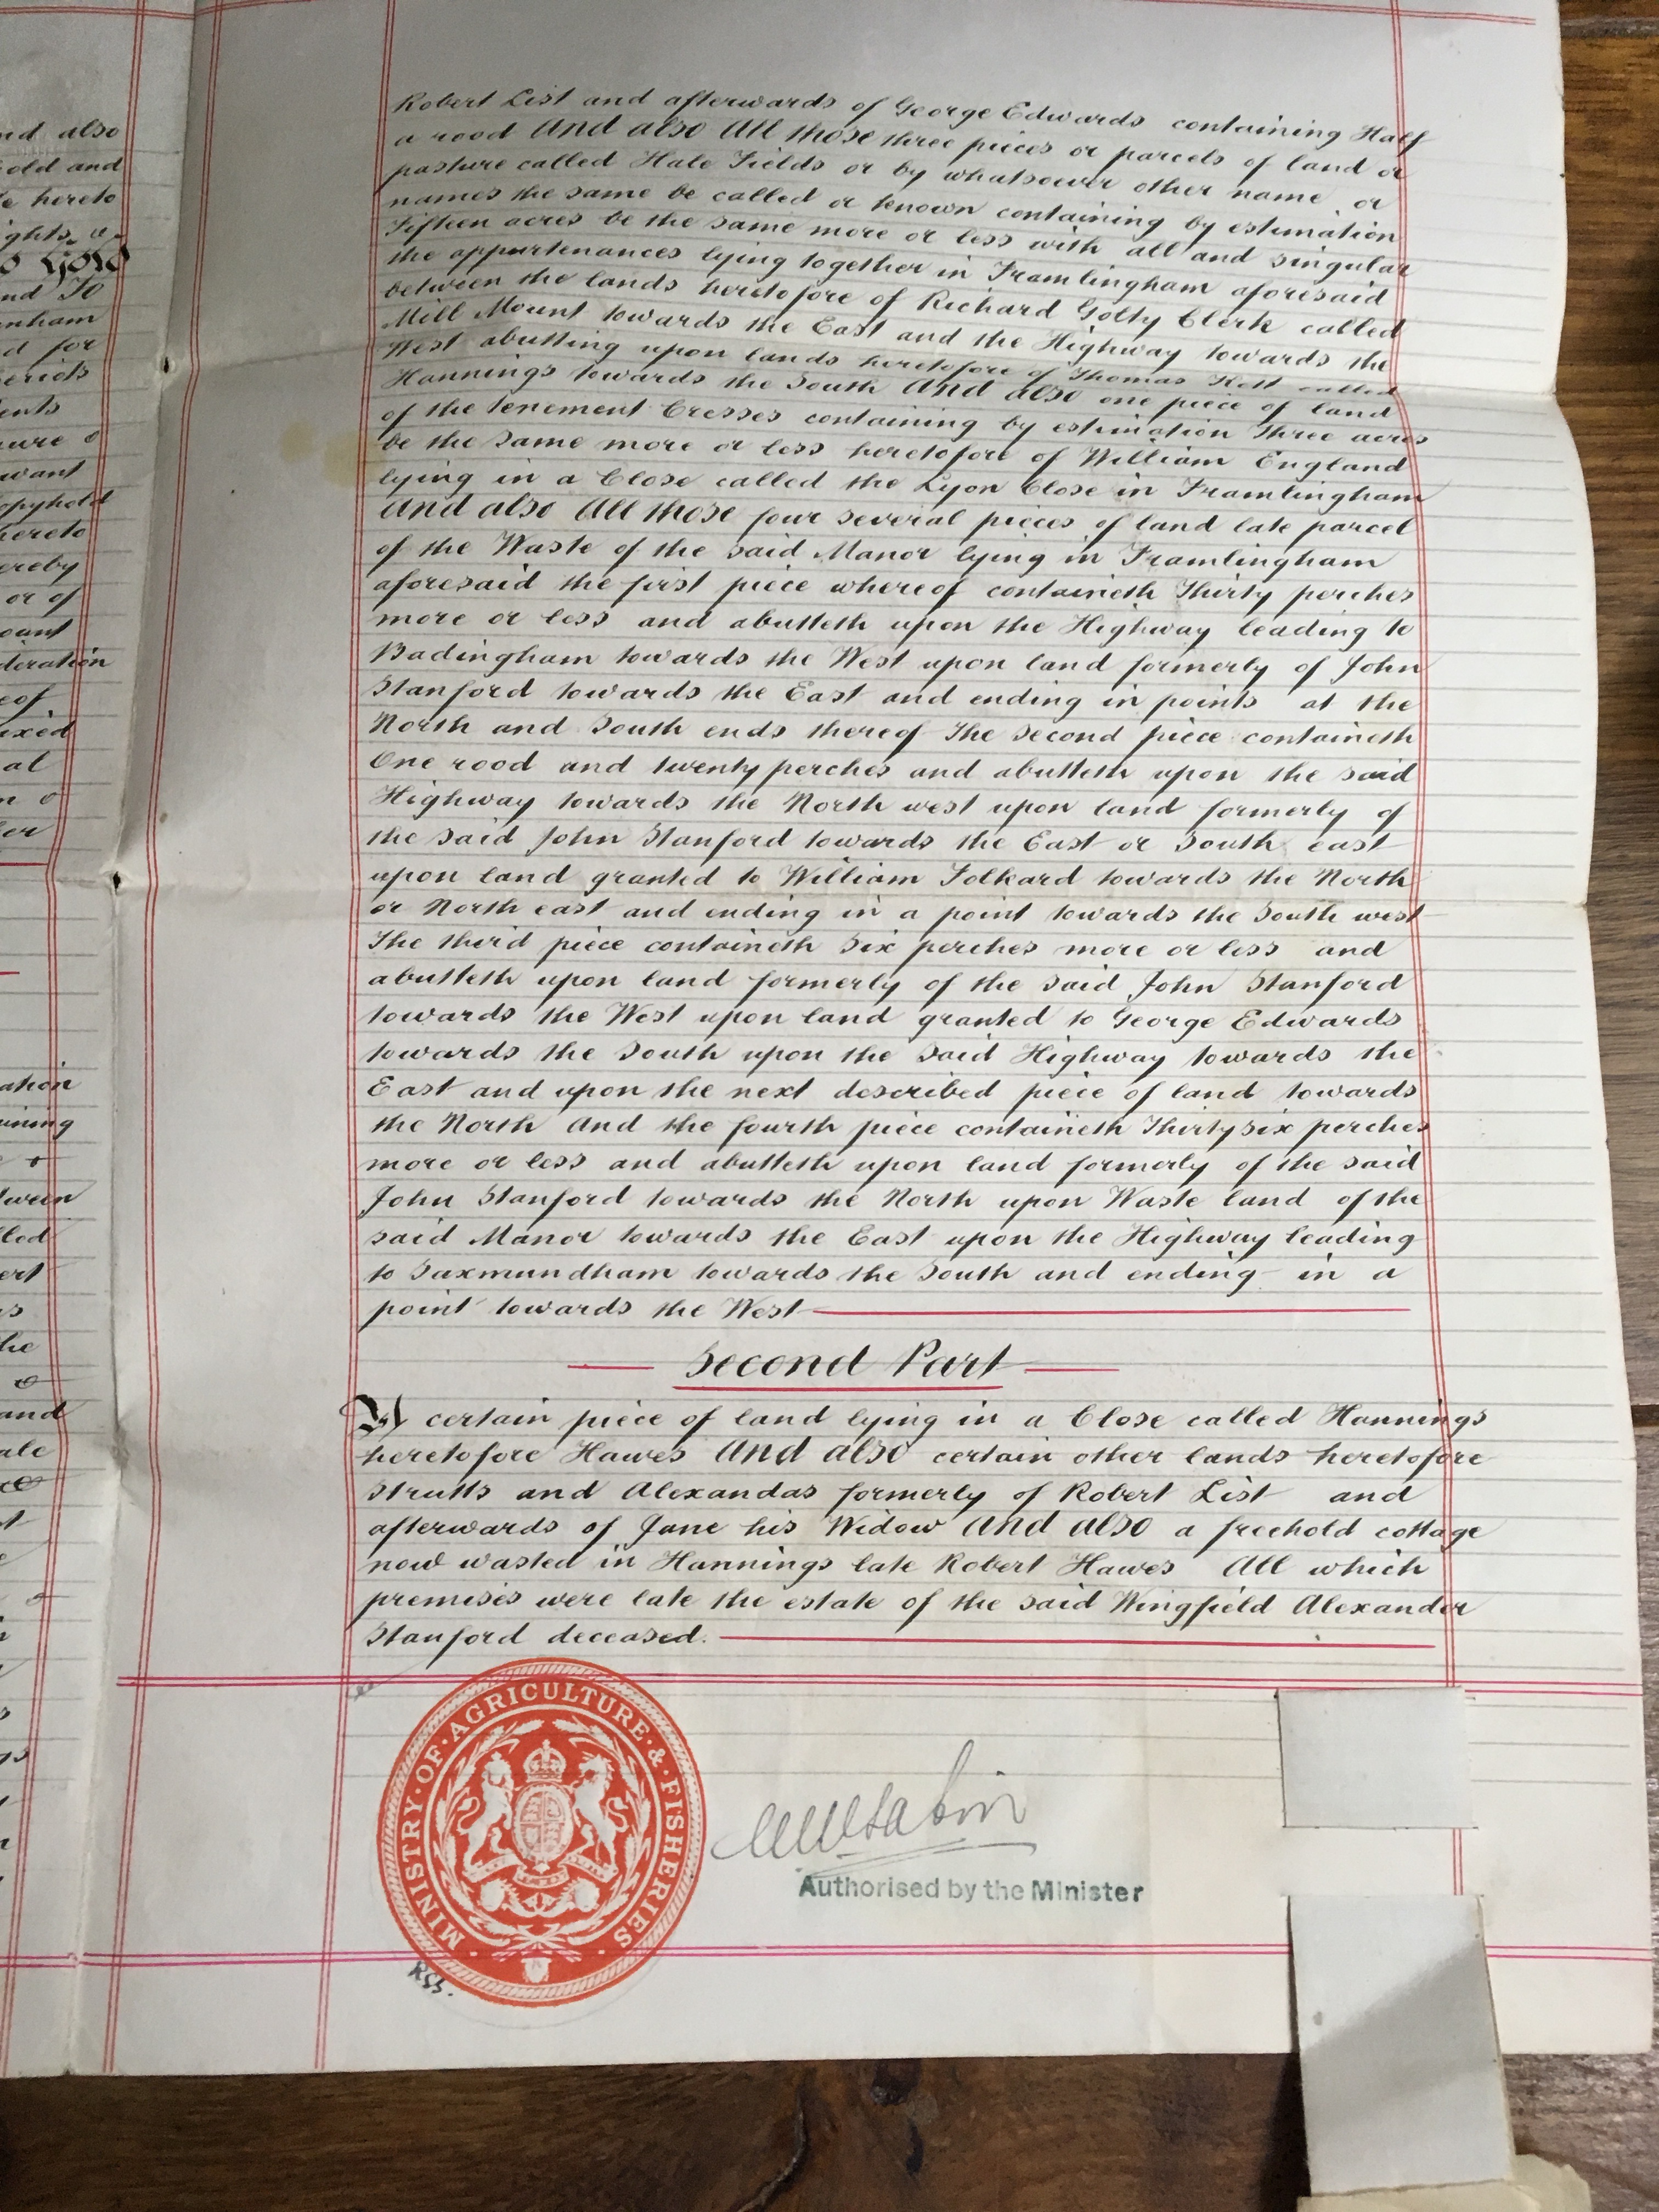 nd also
old and
e hereto
ights
nd To
enham
d for
ents
want
opyhold
hereto
ereby
or of
deration
eof
ixed
al
ation
and
Robert List and afterwards of George Edwards containing Half
a rood And also All those three pieces or parcels of land or
pasture called Hale Fields or by whatsoever other name or
names the same be called or known containing by estimation
Fifteen acres be the same more or less with all and singular
the appurtenances lying together in Framlingham aforesaid
between the lands heretofore of Richard Golty Clerk called
Mill Mount towards the East and the Highway towards the
West abutting upon lands heretofore of Thomas called
Hannings towards the South And also one piece of land
of the tenement Cresses containing by estimation three acres
be the same more or less heretofore of William England
lying in a Close called the Lyon Close in Framlingham
And also All those four several pieces of land late parcel
of the Waste of the said Manor lying in Framlingham
aforesaid the first piece whereof containeth Thirty perches
more or less and abutteth upon the Highway leading to
Badingham towards the West upon land formerly of John
Stanford towards the East and ending in points at the
North and South ends thereof The second piece containeth
One rood and twenty perches and abutteth upon the said
Highway towards the North west upon land formerly of
the said John Stanford towards the East or South east
upon land granted to William Folkard towards the North
or North east and ending in a point towards the South west
The third piece containeth Six perches more or less and
abutteth upon land formerly of the said John Stanford
towards the West upon land granted to George Edwards
towards the South upon the said Highway towards the
East and upon the next described piece of land towards
the North And the fourth piece containeth Thirty six perches
more or less and abutteth upon land formerly of the said
John Stanford towards the North upon Waste land of the
said Manor towards the East upon the Highway leading
to Saxmundham towards the South and ending in a
point towards the West
Second Part
A certain piece of land lying in a Close called Hannings
heretofore Hawes And also certain other lands heretofore
Strutts and Alexandas formerly of Robert List and
afterwards of Jane his Widow And also a freehold cottage
now wasted in Hannings late Robert Hawes All which
premises were late the estate of the said Wingfield Alexander
Stanford deceased.
MINISTRY · OF · AGRICULTURE · & · FISHERIES
Authorised by the Minister